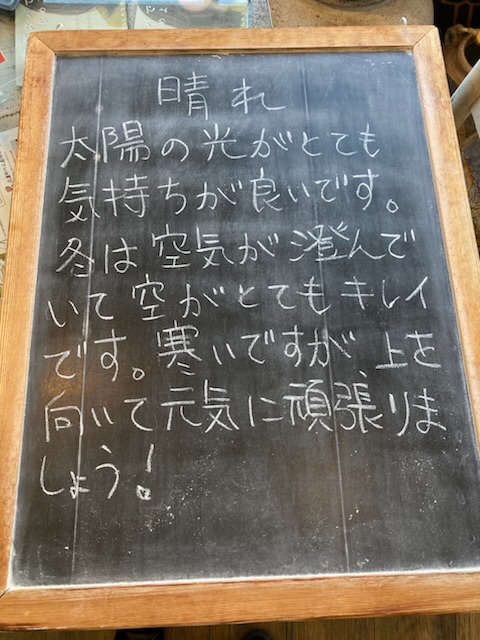 晴れ
太陽の光がとても
気持ちが良いです。
冬は空気が澄んで
いて空がとてもキレイ
です。寒いですが、上を
向いて元気に頑張りま
しょう!